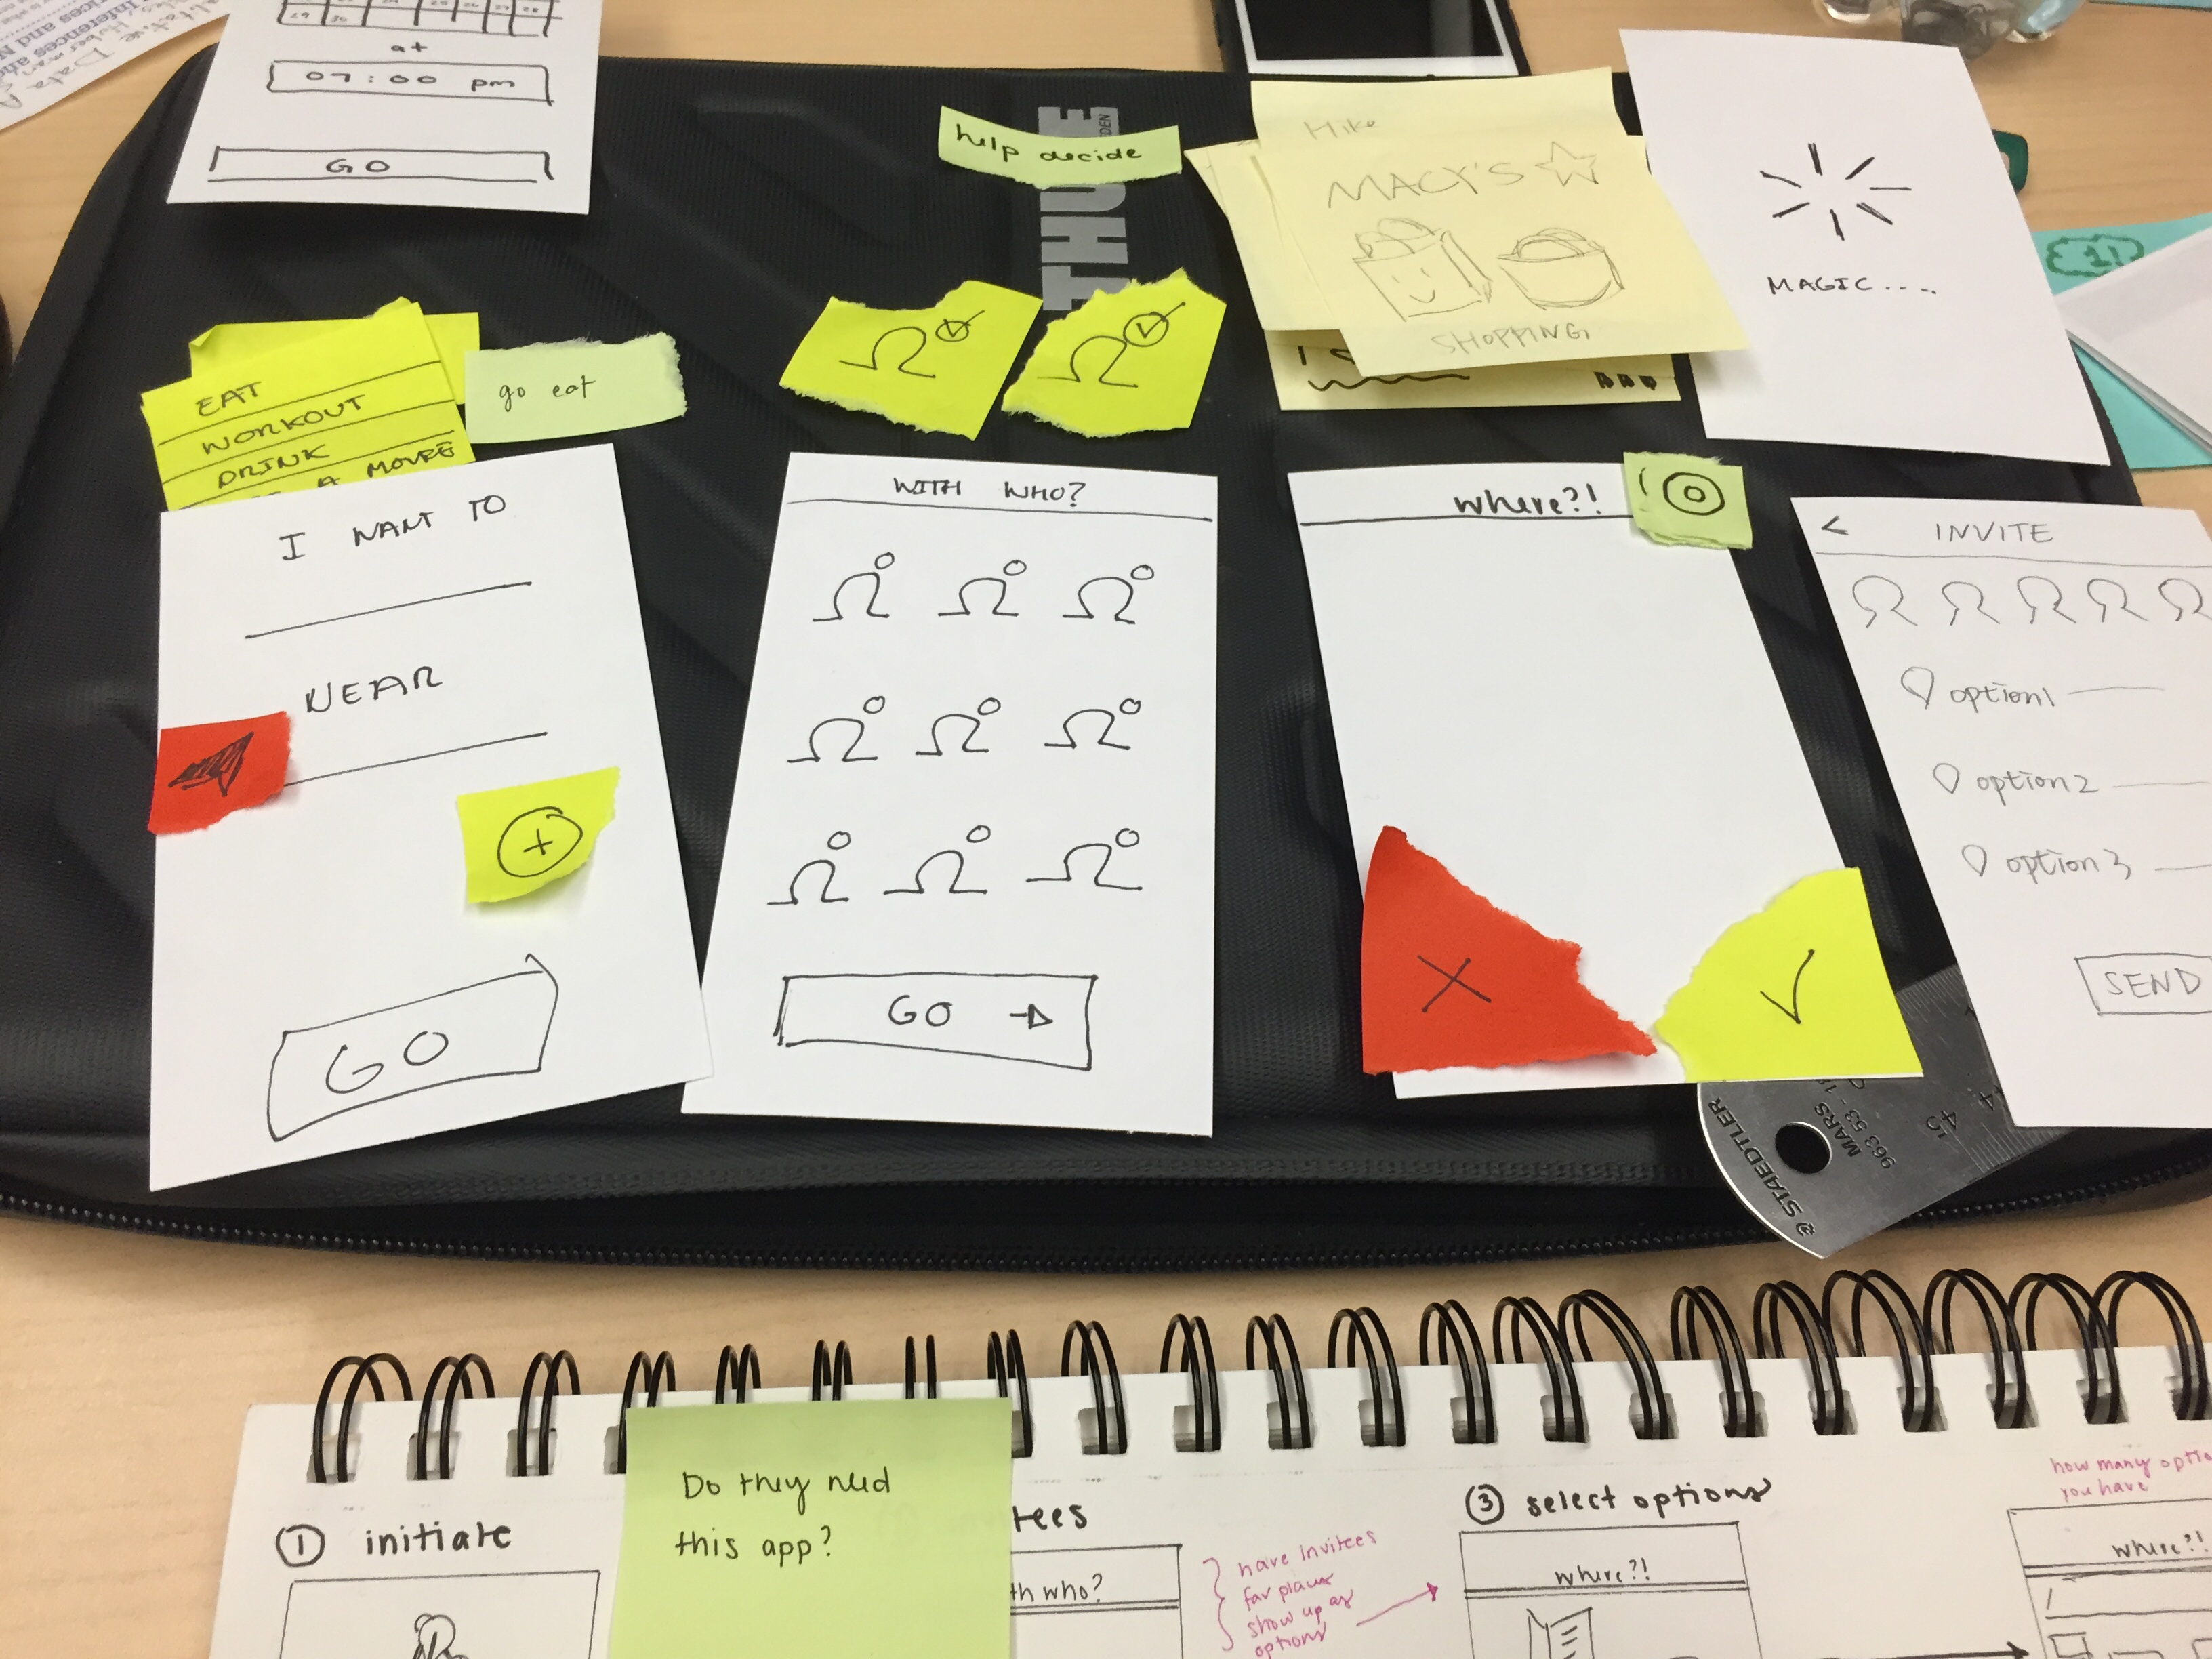 at
07:00 pm
GO
help decide
THULE
Hike
MACY'S
SHOPPING
MAGIC....
EAT
WORKOUT
DRINK
A MOVIE
go eat
I WANT TO
NEAR
GO
WITH WHO?
GO
where?!
< INVITE
option1
option2
option3
SEND
STAEDTLER
MARS
963 53-18
Do they need
this app?
1 initiate
tees
th who?
have invitees
fav places
show up as
options
3 select options
where?!
how many optio
you have
where?!